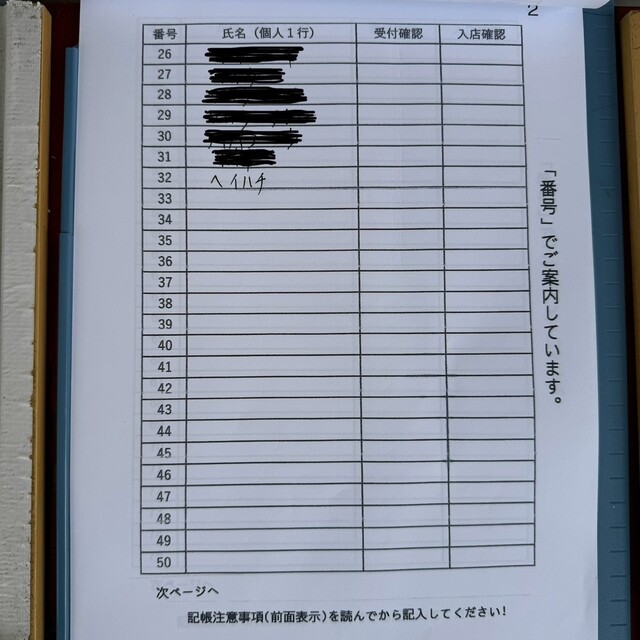 2
番号 氏名（個人1行） 受付確認 入店確認
26
27
28
29
30
31
32 ヘイハチ
33
34
35
36
37
38
39
40
41
42
43
44
45
46
47
48
49
50
「番号」でご案内しています。
次ページへ
記帳注意事項(前面表示)を読んでから記入してください!